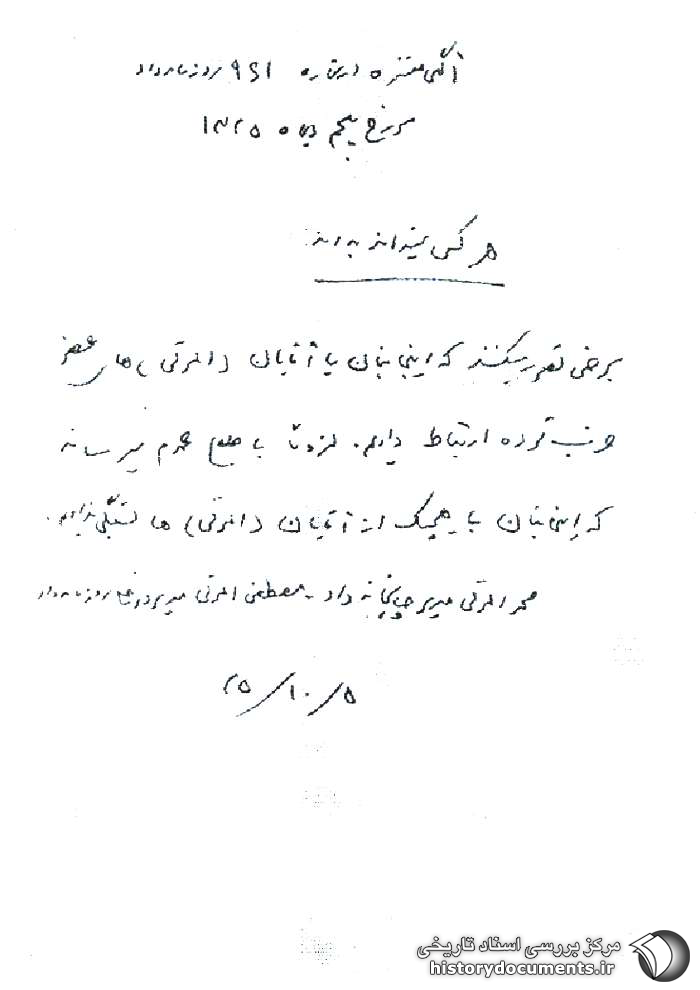 آگهی منتشره در شماره ۹۶۱ روزنامه داد
مورخ پنجم دیماه ۱۳۲۵
هر کس میداند بداند:
برخی تصور میکنند که اینجانبان با آقایان (الموتی) های عضو
حزب توده ارتباط داریم. لزوماً باطلاع عموم میرساند
که اینجانبان با هیچیک از آقایان (الموتی) ها بستگی نداریم.
محمد الموتی مدیر چاپخانه داد - مصطفی الموتی مدیر داخلی روزنامه داد
۲۵/۱۰/۵
مرکز بررسی اسناد تاریخی
historydocuments.ir